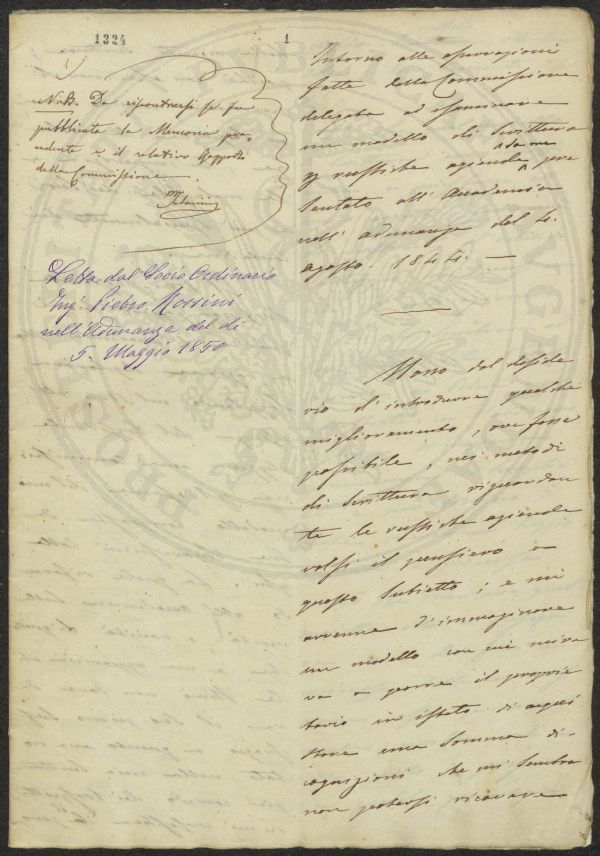 1324
1
N.B. Da riscontrarsi se fu
pubblicata la Memoria pre-
cedente e il relativo Rapporto
della Commissione.
Letta dal Socio Ordinario
Ing.e Pietro Rossini
nell'Adunanza del dì
5. Maggio 1850
Intorno alle osservazioni
fatte dalla Commissione
delegata ad esaminare
un modello di Scrittura
rustiche aziende da me pre
sentato all'Accademia
nell'adunanza del 4.
agosto 1844. —
Mosso dal deside
rio d'introdurre qualche
miglioramento, ove fosse
possibile, nei metodi
di Scrittura riguardan
te le rustiche aziende
volsi il pensiero a
questo Subietto; e mi
avvenne d'immaginare
un modello con cui mirava
va a porre il proprie
tario in istato di acqui
stare una Somma di
cognizioni che mi Sembra
non potersi ricavare